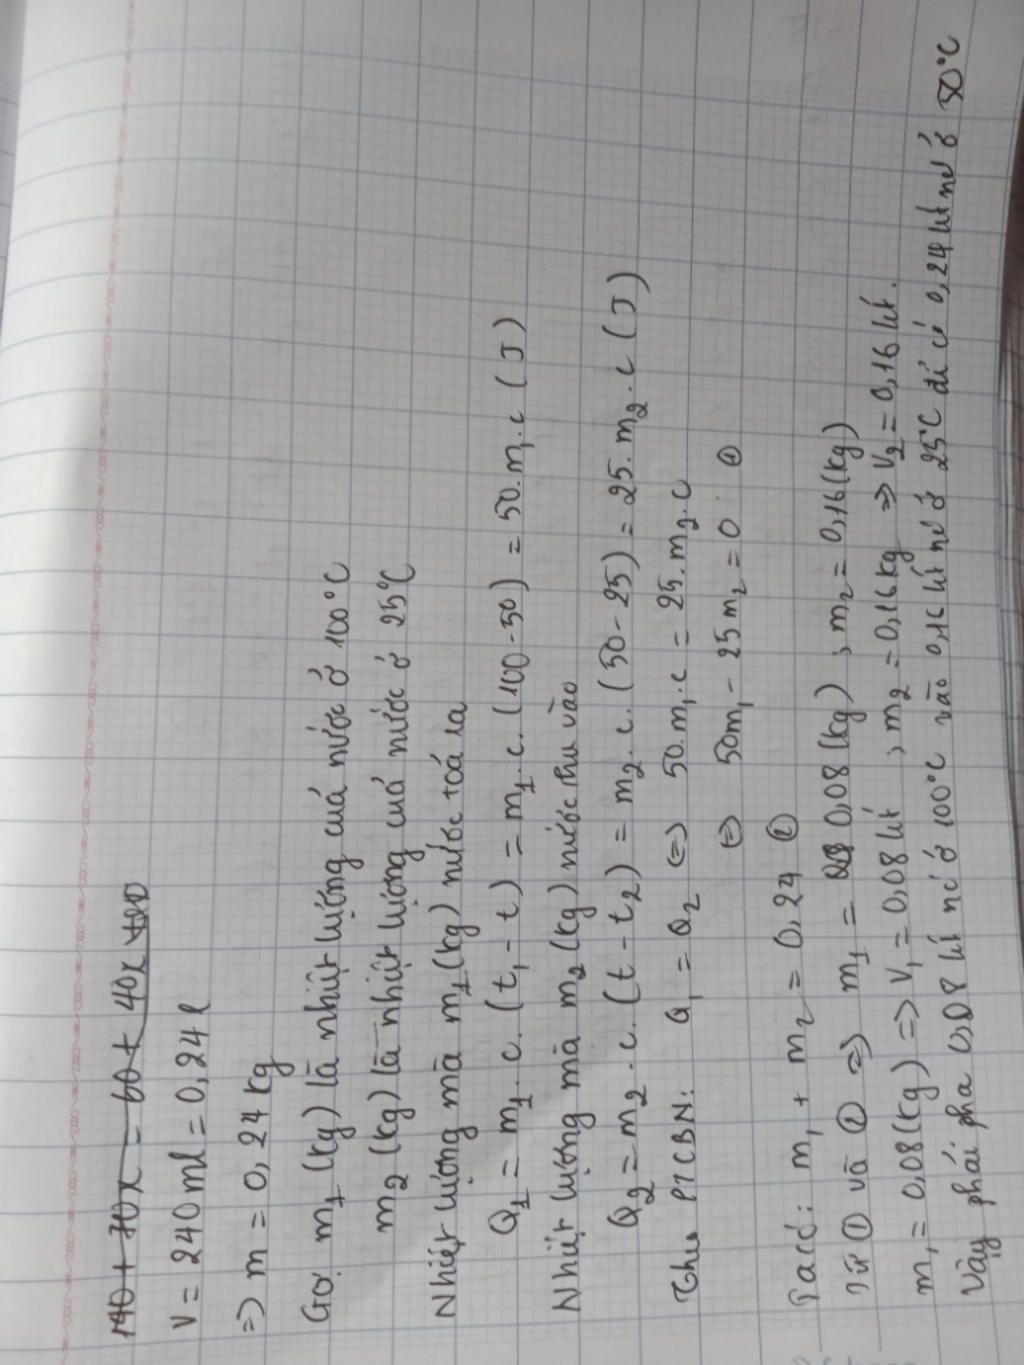 140 + 70x = 60 + 40x + 100
V = 240 ml = 0,24 l
=> m = 0,24 kg
Gọi m1 (kg) là nhiệt lượng của nước ở 100°C
m2 (kg) là nhiệt lượng của nước ở 25°C
Nhiệt lượng mà m1 (kg) nước toả ra
Q1 = m1 . c . (t1 - t) = m1 . c . (100 - 50) = 50. m1 . c (J)
Nhiệt lượng mà m2 (kg) nước thu vào
Q2 = m2 . c . (t - t2) = m2 . c . (50 - 25) = 25. m2 . c (J)
Theo PTCBN: Q1 = Q2 <=> 50. m1 . c = 25. m2 . c
<=> 50m1 - 25m2 = 0 ①
Ta có: m1 + m2 = 0,24 ②
Từ ① và ② => m1 = 0,08 (kg) ; m2 = 0,16 (kg)
m1 = 0,08 (kg) => V1 = 0,08 lít ; m2 = 0,16 kg => V2 = 0,16 lít.
Vậy phải pha 0,08 lít nc ở 100°C vào 0,16 lít nc ở 25°C để có 0,24 lít nc ở 50°C